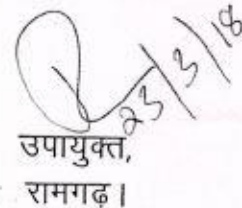 23/3/18
उपायुक्त,
रामगढ़।